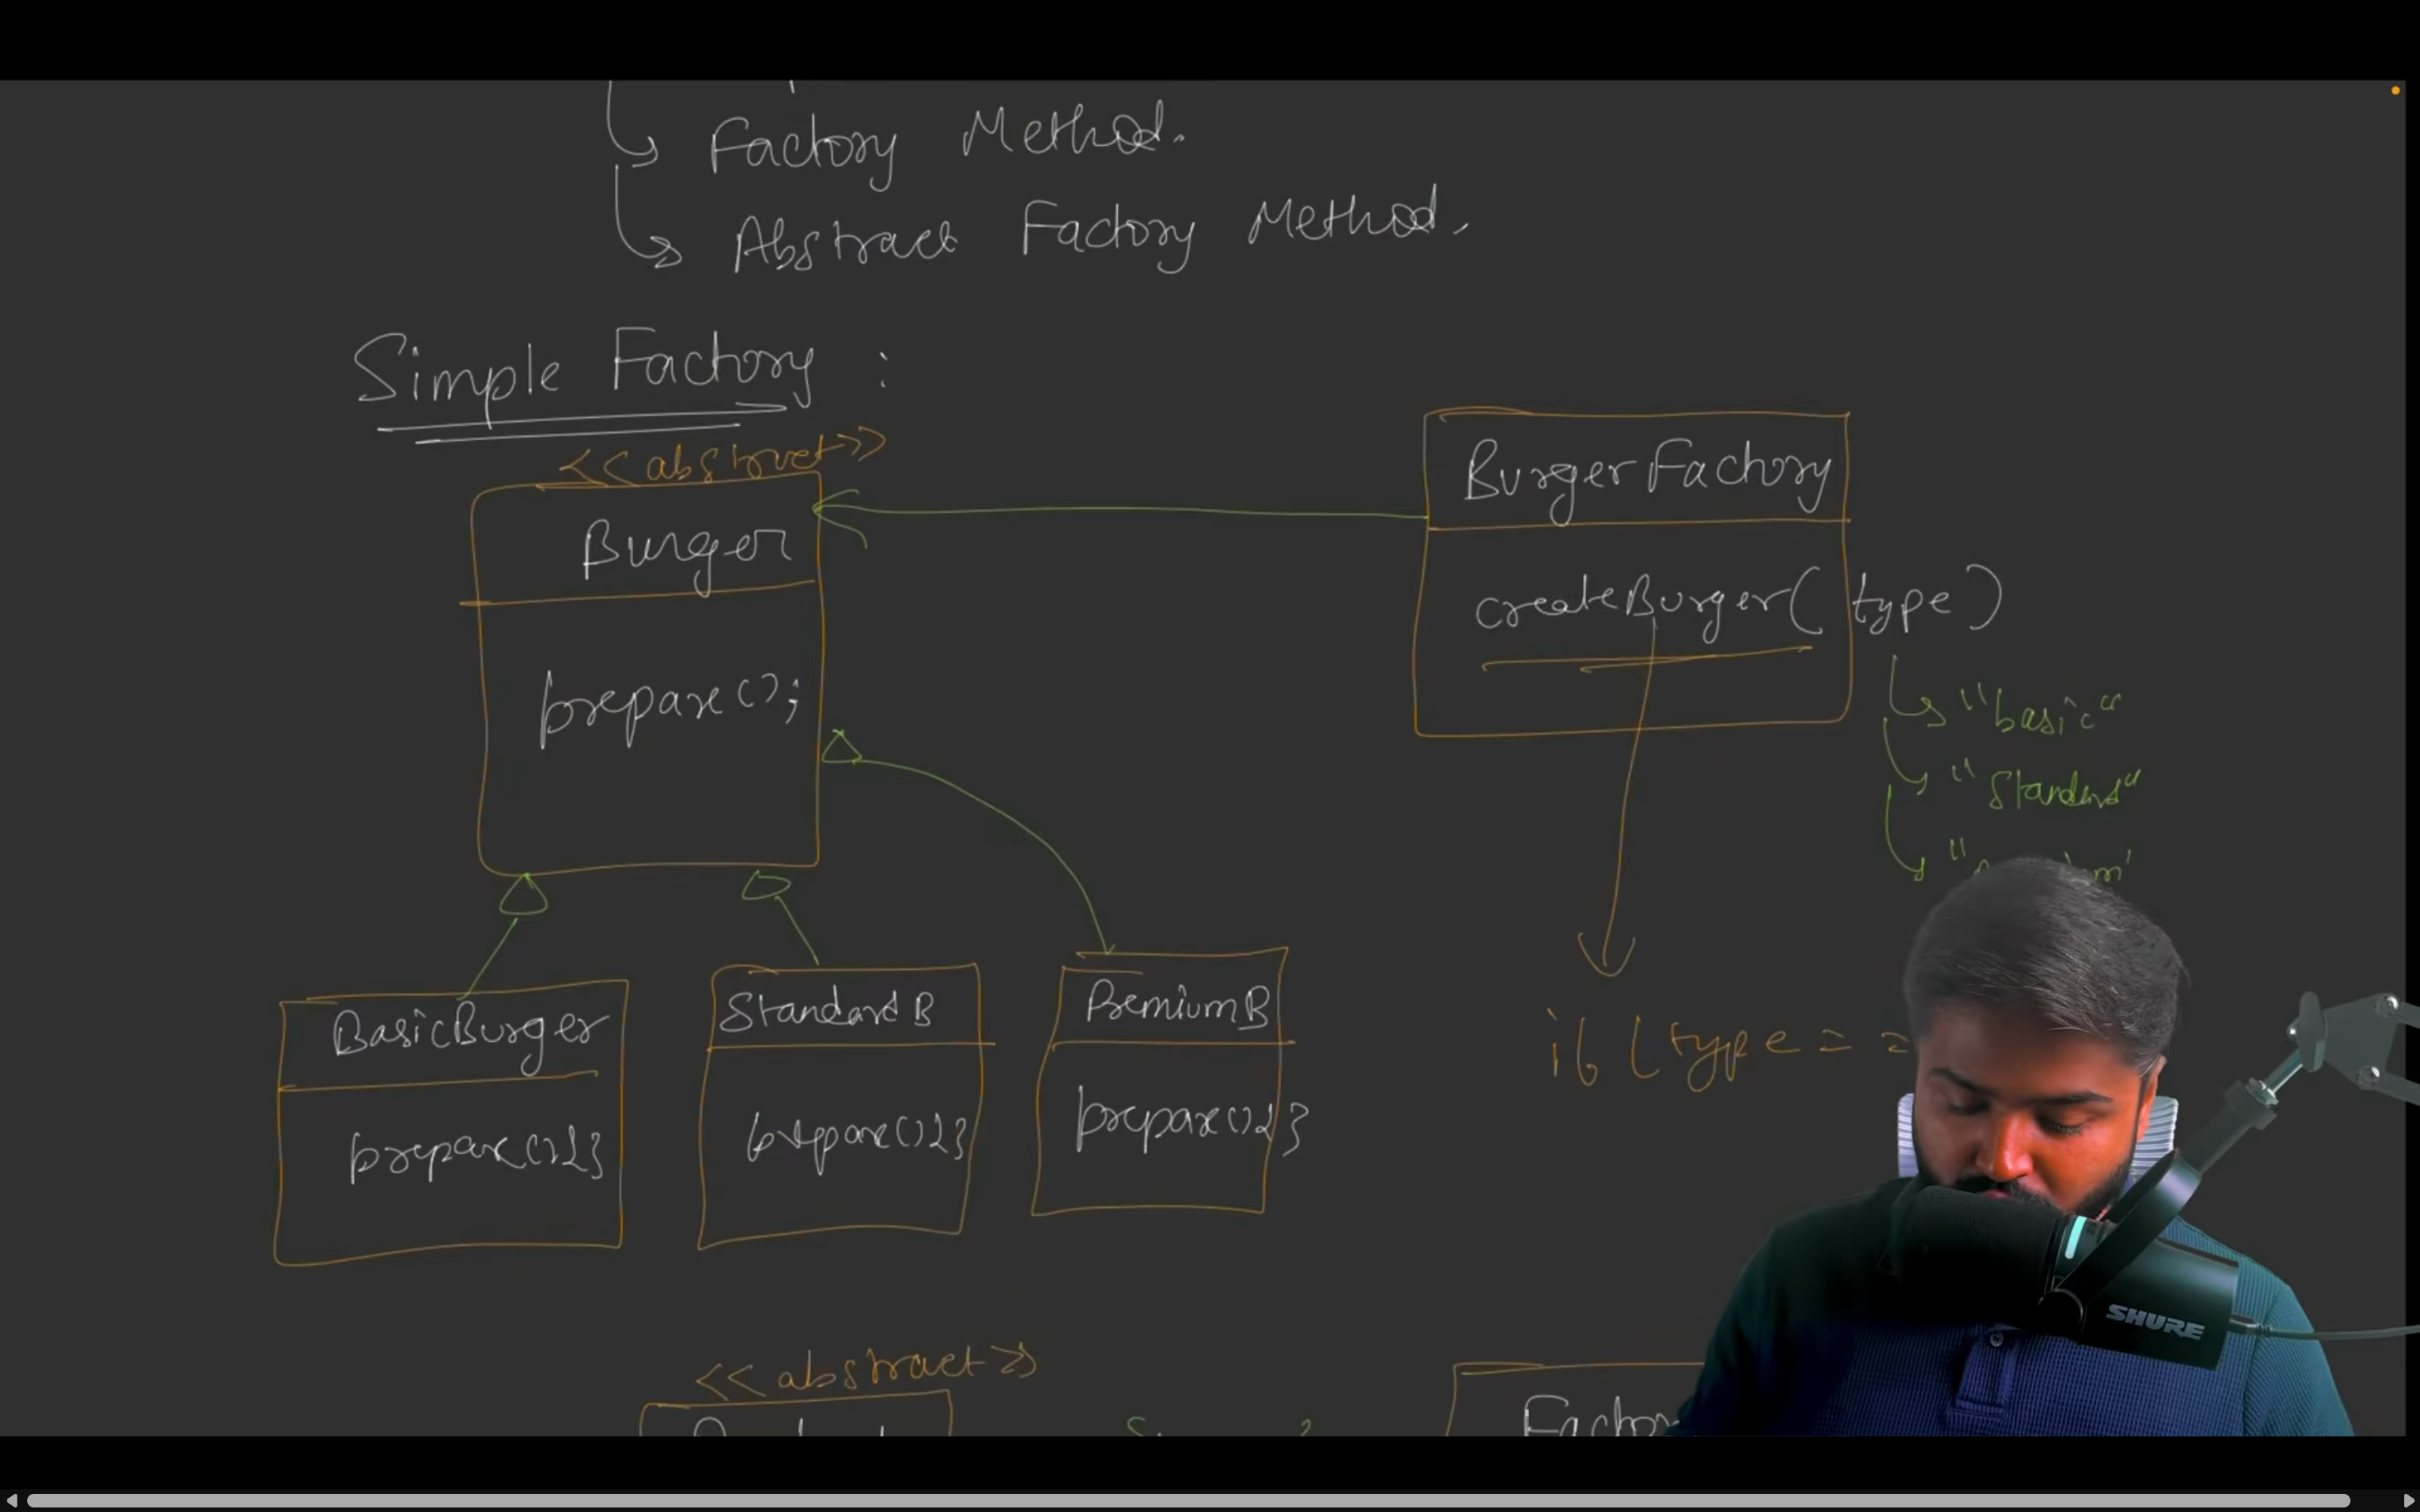 Factory Method.
Abstract Factory Method.
Simple Factory :
<<abstract>>
Burger
prepare();
BurgerFactory
createBurger( type )
"basic"
"Standard"
if (type = =
BasicBurger
prepare(){}
StandardB
prepare(){}
PremiumB
prepare(){}
<<abstract>>
Factory
SHURE